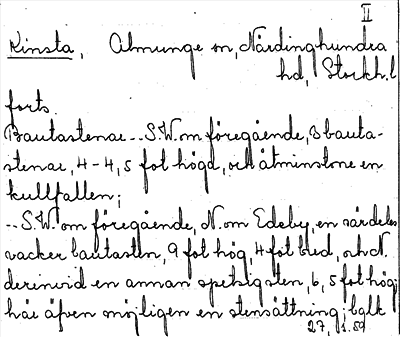 II
Kinsta, Almunge sn, Närdinghundra
hd, Stockh.l
forts.
Bautastenar -- S.W. om föregående, 3 bauta-
stenar, 4-4,5 fot höga, och åtminstone en
kullfallen;
-- S.W. om föregående, N. om Edeby, en särdeles
vacker bautasten, 9 fot hög, 4 fot bred, och N.
derinvid en annan spetsig sten, 6,5 fot hög;
här äfven möjligen en stensättning; bglk
27, s. 59